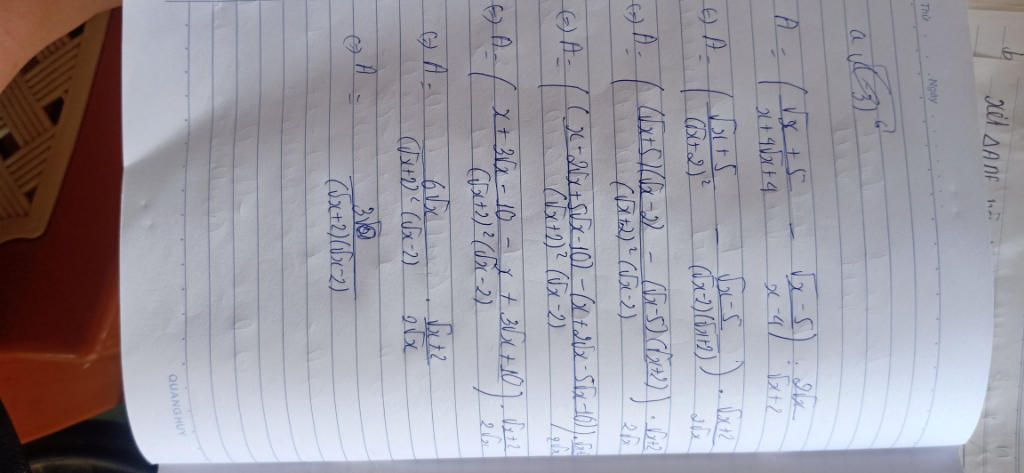 Thứ Ngày
a √(-3)⁶
A = ( (√x + 5)/(x + 4√x + 4) - (√x - 5)/(x - 4) ) : 2√x/(√x + 2)
(=) A = ( (√x + 5)/(√x + 2)² - (√x - 5)/((√x - 2)(√x + 2)) ) . (√x + 2)/2√x
(=) A = ( ((√x + 5)(√x - 2) - (√x - 5)(√x + 2))/((√x + 2)² (√x - 2)) ) . (√x + 2)/2√x
(=) A = ( ((x - 2√x + 5√x - 10) - (x + 2√x - 5√x - 10))/((√x + 2)² (√x - 2)) ) . (√x + 2)/2√x
(=) A = ( (x + 3√x - 10 - x + 3√x + 10)/((√x + 2)² (√x - 2)) ) . (√x + 2)/2√x
(=) A = 6√x/((√x + 2)² (√x - 2)) . (√x + 2)/2√x
(=) A = 3/((√x + 2)(√x - 2))
QUANG HUY
b
xét Δ